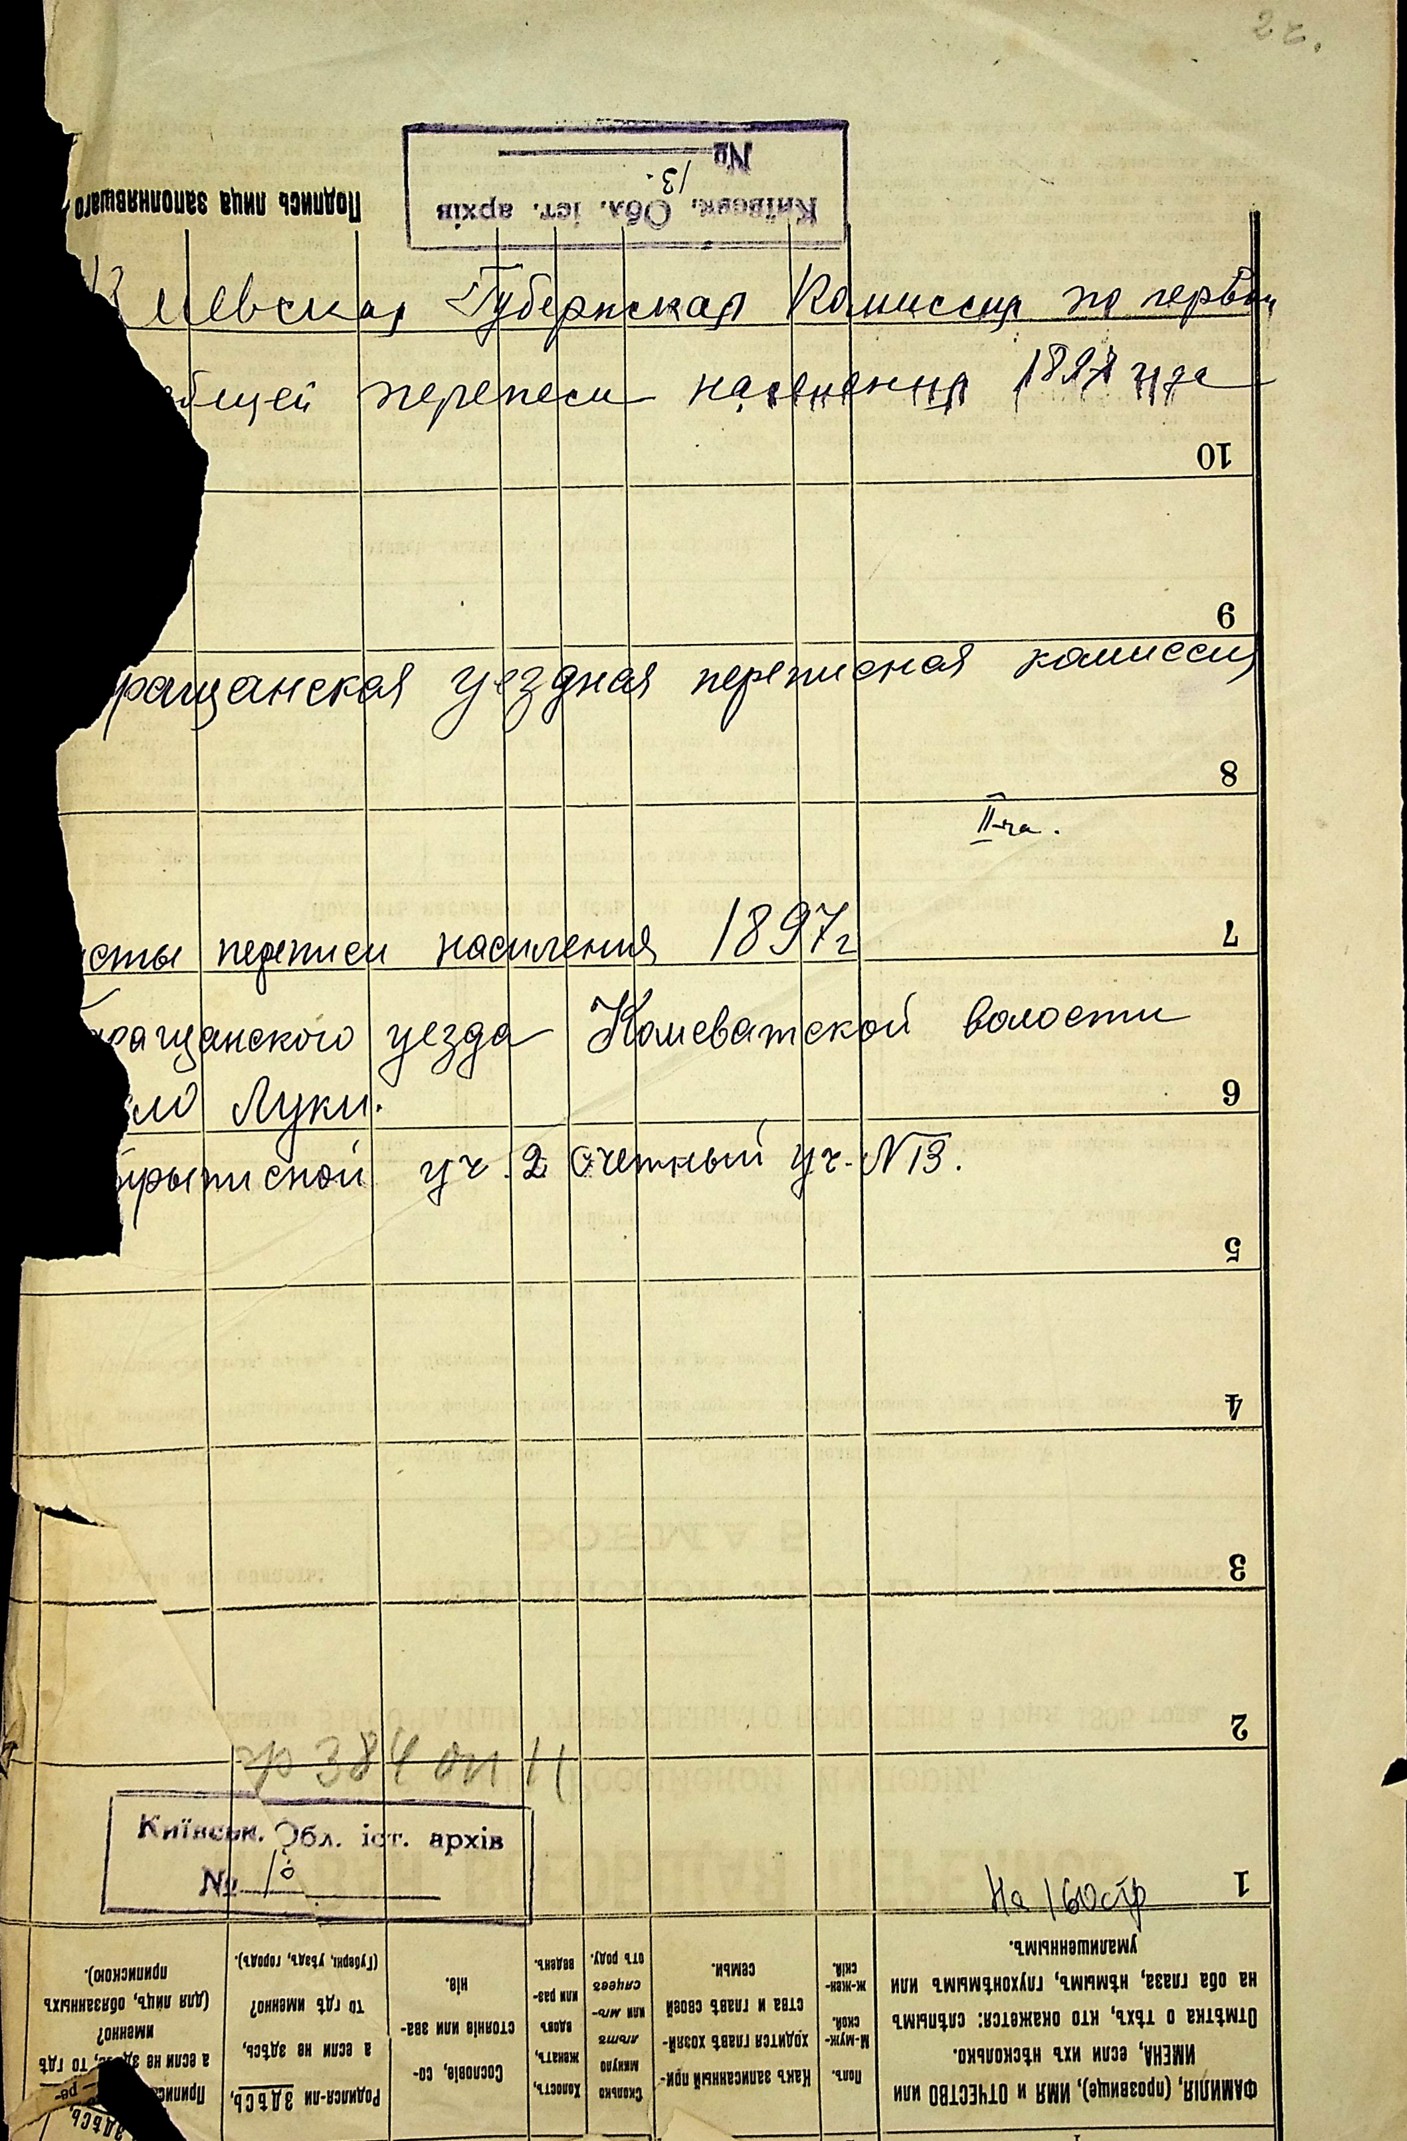 2 ч.
№ 13.
Київськ. Обл. іст. архів
Подпись лица заполнявшаго
Киевская Губернская Комиссия по первой
общей переписи населения 1897 года
10
9
ращанская уездная переписная комиссия
8
II-ча.
7
исты переписи населения 1897г
аращанского уезда Комеватской волости
6
ло Луки.
уч. 2 счетный уч. N 13.
5
4
3
2
ф 384 оп 11
Київськ. Обл. іст. архів
№
На 160 стр
1
ФАМИЛІЯ, (прозвище), ИМЯ и ОТЧЕСТВО или
ИМЕНА, если ихъ нѣсколько.
Отмѣтка о тѣхъ, кто окажется: слѣпымъ
на оба глаза, нѣмымъ, глухонѣмымъ или
умалишеннымъ.
Полъ.
М-муж-
ской.
Ж-жен-
скій.
Какъ записанный при-
ходится главѣ хозяй-
ства и главѣ своей
семьи.
Сколько
минуло
лѣтъ
или мѣ-
сяцевъ
отъ роду.
Холостъ,
женатъ,
вдовъ
или раз-
веденъ.
Сословіе, со-
стояніе или зва-
ніе.
Родился-ли ЗДѢСЬ,
а если не здѣсь,
то гдѣ именно?
(Губерн., уѣздъ, городъ).
Приписа
а если не здѣсь, то гдѣ
именно?
(для лицъ, обязанныхъ
припискою).
ЗДѢСЬ,